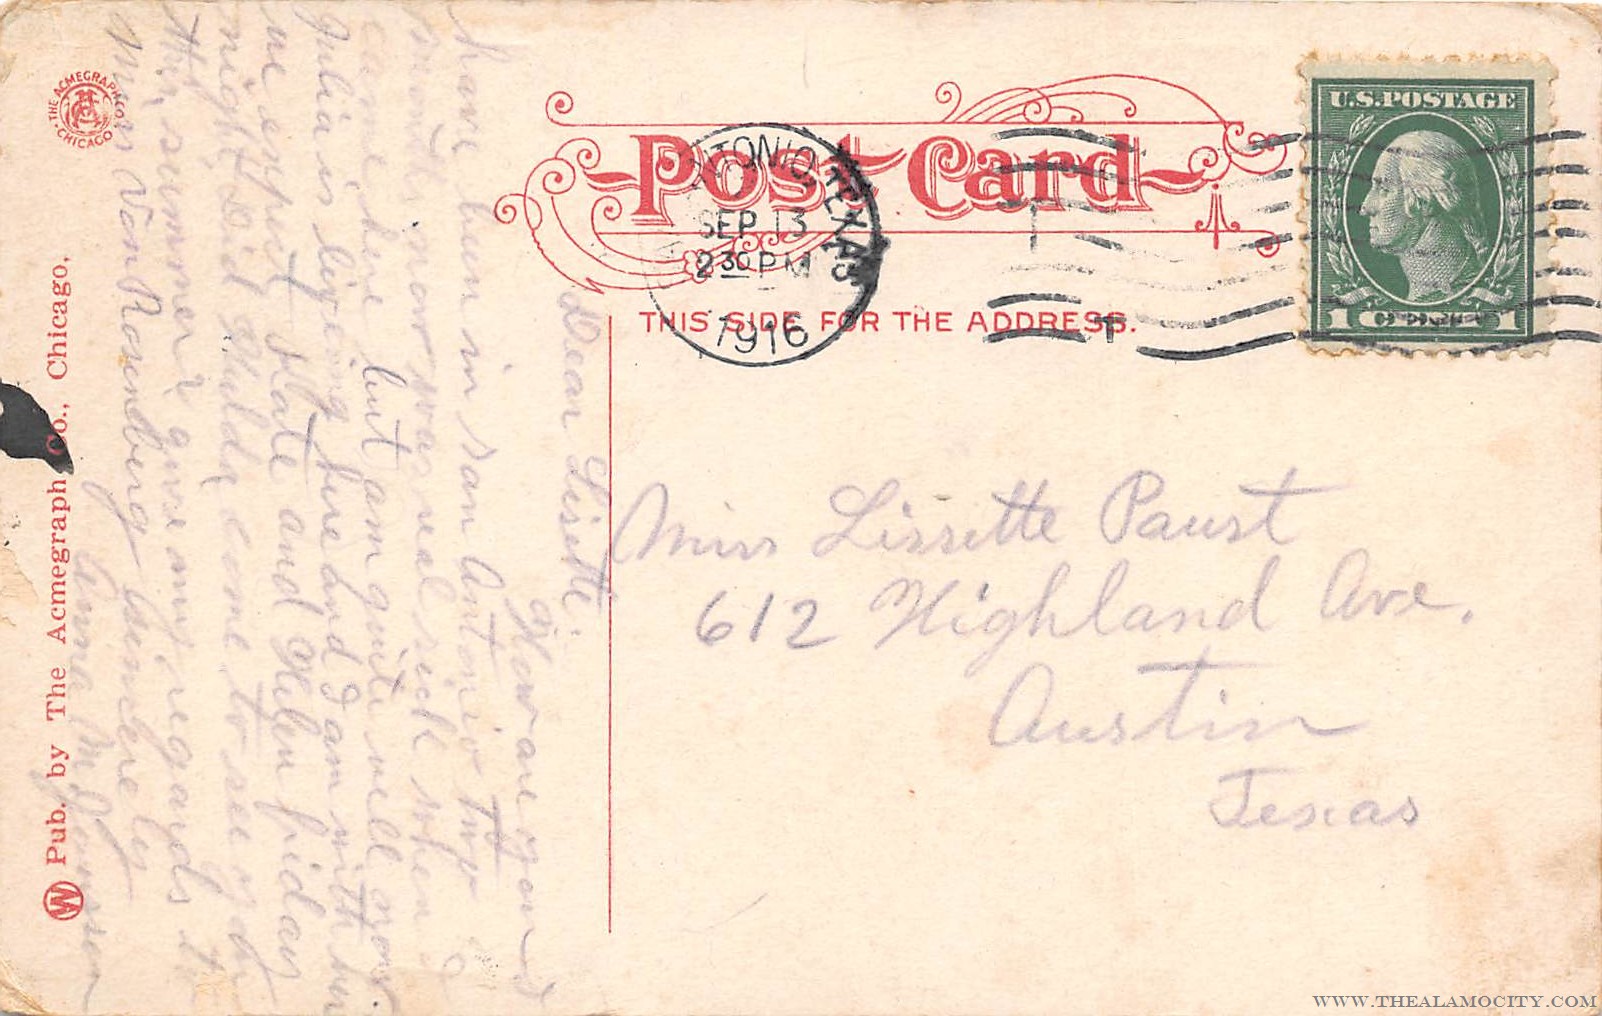 THE ACMEGRAPH CO. CHICAGO
Post Card
U.S. POSTAGE
1 CENTS 1
ANTONIO, TEXAS
SEP 13
2 30 PM
1916
THIS SIDE FOR THE ADDRESS.
Dear Lisette:
How are you I
have been in San Antonio two
months now was real sick when I
came here but am quite well now
Julia is living here and I am with her
we expect Kate and Helen friday
night Did Hulda come to see you
this summer? give my regards to
Miss Von Rosenberg Sincerely
Anna M
Miss Lissette Paust
612 Highland Ave.
Austin
Texas
W Pub. by The Acmegraph Co., Chicago,
WWW.THEALAMOCITY.COM